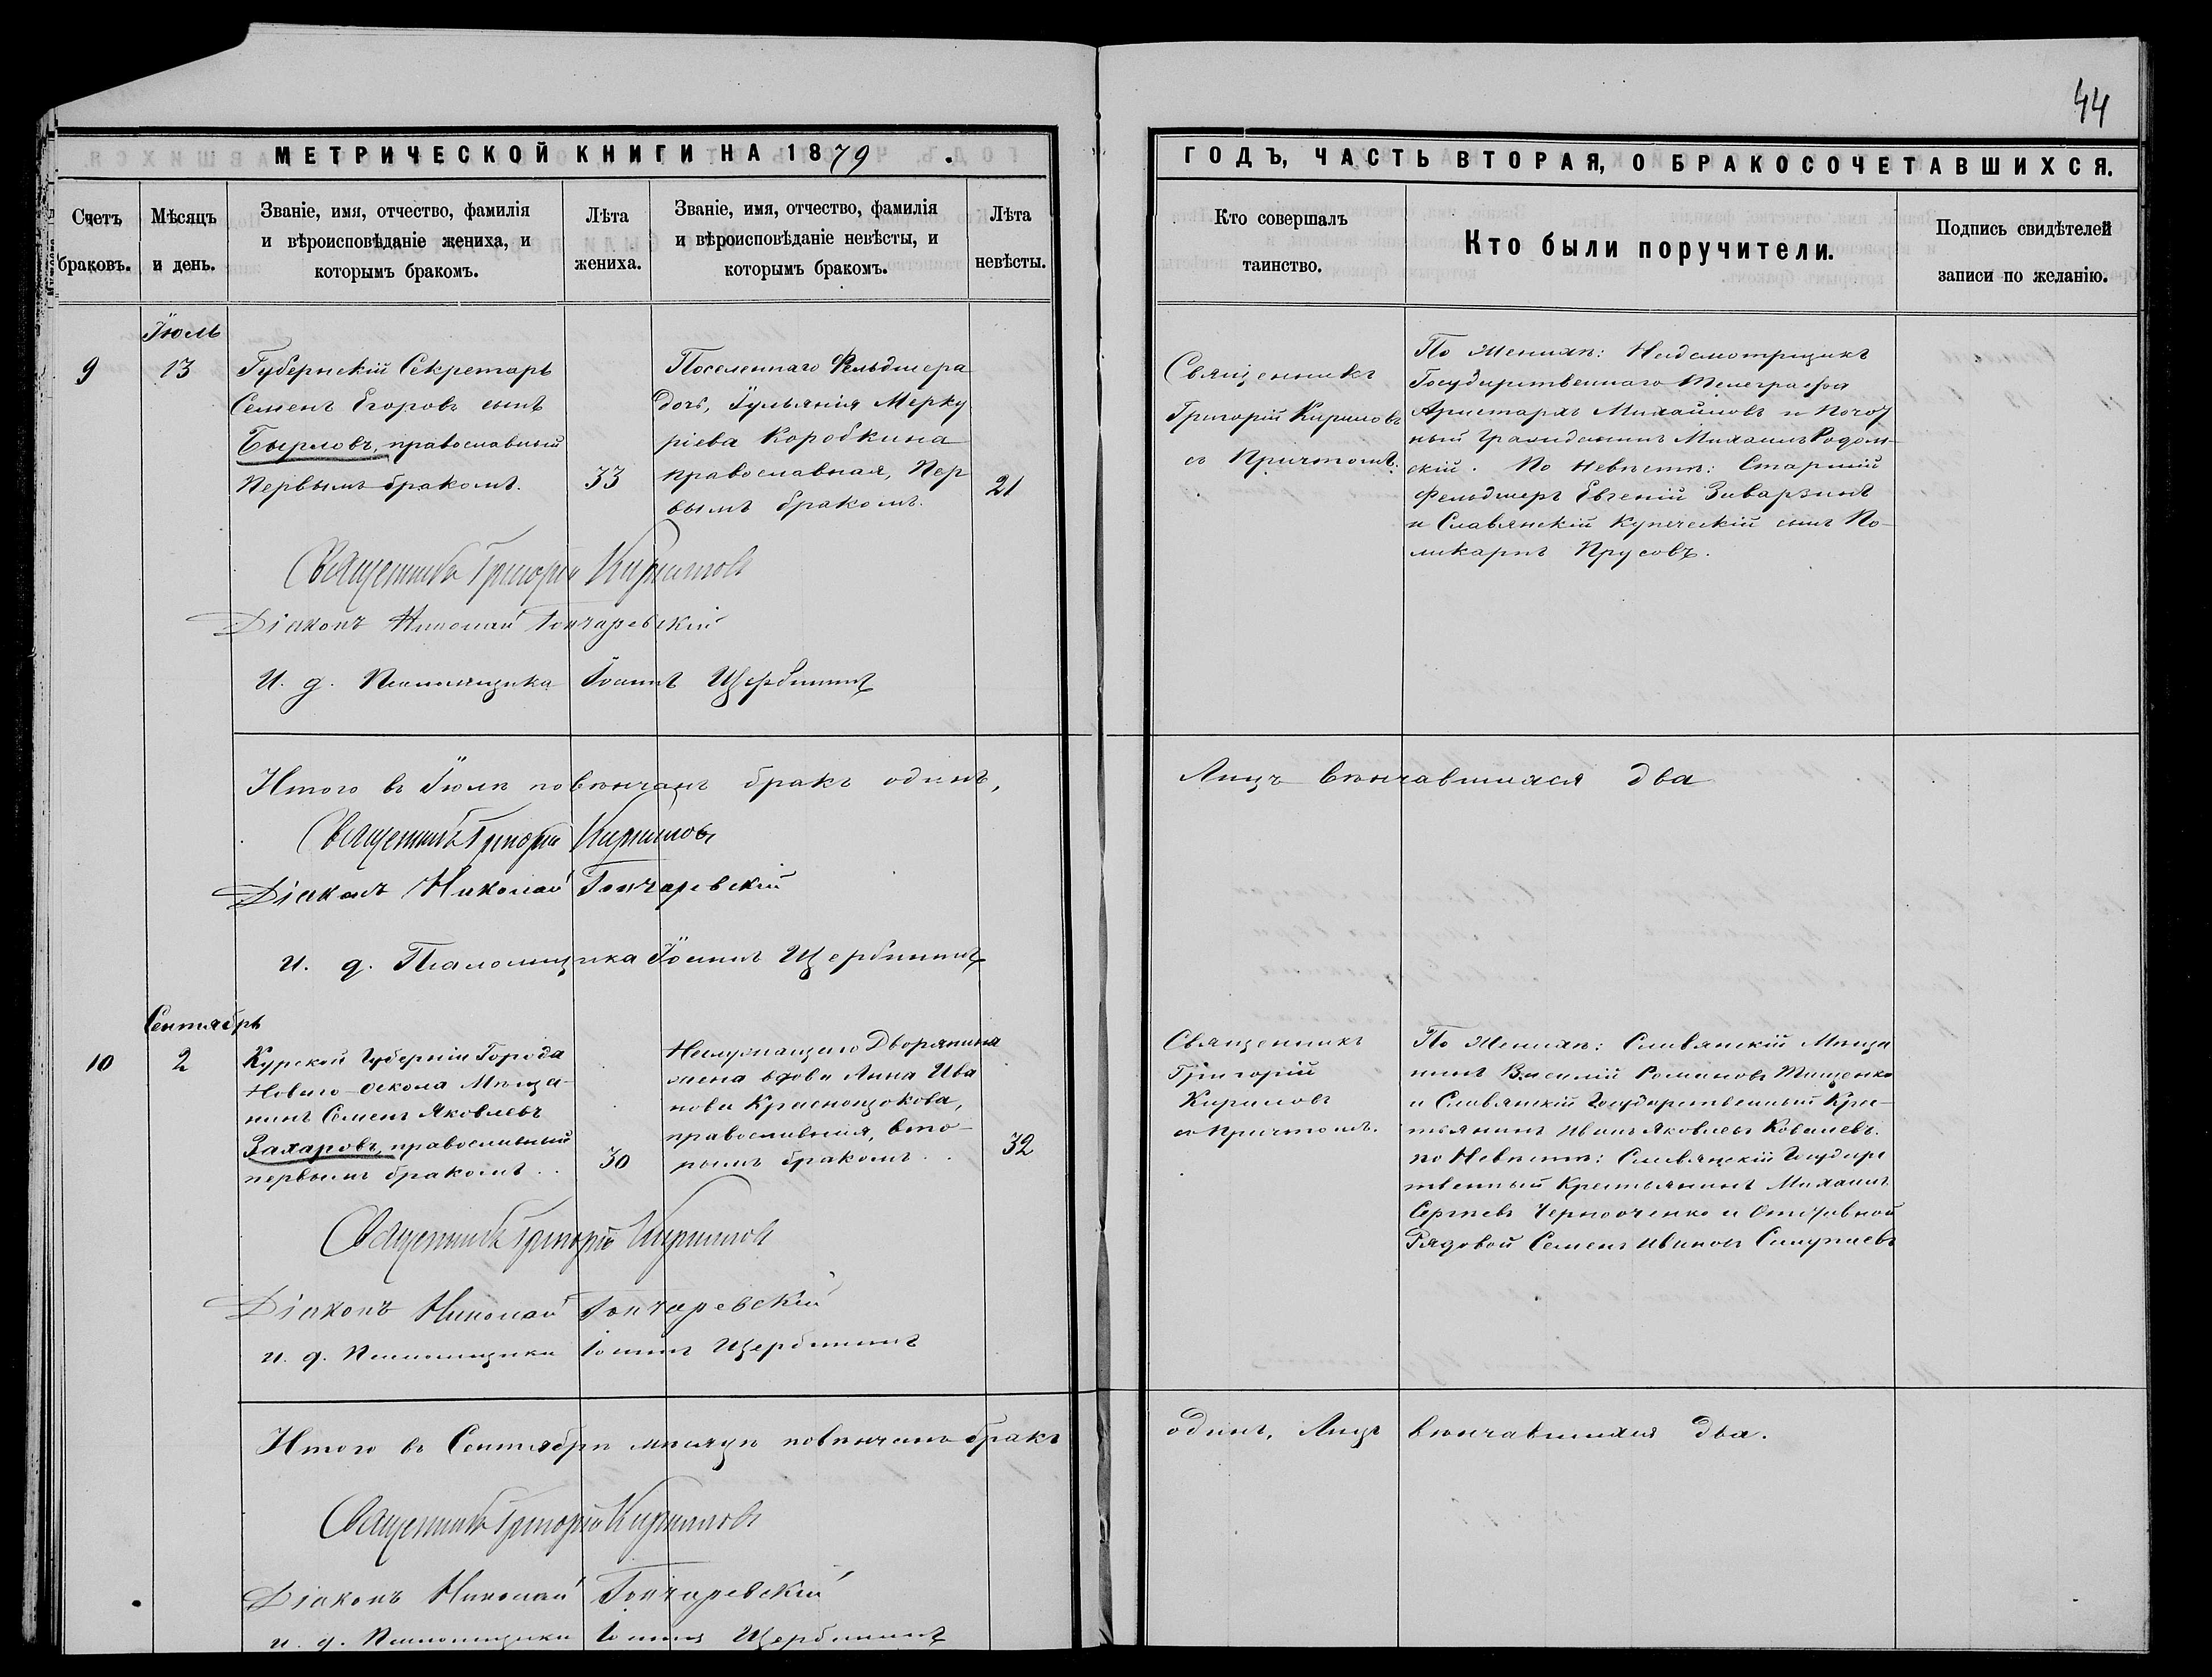 44
МЕТРИЧЕСКОЙ КНИГИ НА 1879
ГОДЪ, ЧАСТЬ ВТОРАЯ, О БРАКОСОЧЕТАВШИХСЯ.
Счетъ браковъ.
Мѣсяцъ и день.
Званіе, имя, отчество, фамилія
и вѣроисповѣданіе жениха, и
которымъ бракомъ.
Лѣта
жениха.
Званіе, имя, отчество, фамилія
и вѣроисповѣданіе невѣсты, и
которымъ бракомъ.
Лѣта
невѣсты.
Кто совершалъ
таинство.
Кто были поручители.
Подпись свидѣтелей
записи по желанію.
9
Іюль
13
Губернскій Секретарь
Семенъ Егоровъ сынъ
Бырловъ, православный
Первымъ бракомъ.
33
Поселеннаго Фельдшера
дочь, Іульянія Мерку
ріева Коробкина
православная, Пер
вымъ бракомъ.
21
Священникъ
Григорій Кириловъ
съ Причтомъ.
По Женихѣ: Надсмотрщикъ
Государственнаго Телеграфа
Аристархъ Михайловъ и Почот
ный Гражданинъ Михаилъ Радом-
скій. По Невѣстѣ: Старшій
Фельдшеръ Евгеній Заварзинъ
и Славянскій Купеческій сынъ По-
ликарпъ Прусовъ.
Священникъ Григорій Кириловъ
Діаконъ Николай Гончаревскій
И. д. Псаломщика Іоаннъ Щербининъ
Итого въ Іюлѣ повѣнчанъ бракъ одинъ,
Лицъ вѣнчавшихся два
Священникъ Григорій Кириловъ
Діаконъ Николай Гончаревскій
И. д. Псаломщика Іоаннъ Щербининъ
10
Сентябрь
2
Курской Губерніи Города
Новаго-Оскола Мѣща-
нинъ Семенъ Яковлевъ
Захаровъ, православный
первымъ бракомъ..
30
Неслужащаго Дворянина
жена вдова Анна Ива
нова Краснощокова,
православная, вто-
рымъ бракомъ..
32
Священникъ
Григорій
Кириловъ
съ Причтомъ.
По Женихѣ: Славянскій Мѣща
нинъ Василій Романовъ Тищенко
и Славянскій Государственный Крес-
тьянинъ Иванъ Яковлевъ Ковалевъ.
по Невѣстѣ: Славянскій Государс
твенный Крестьянинъ Михаилъ
Сергѣевъ и Отставной
Рядовой Семенъ Ивановъ
Священникъ Григорій Кириловъ
Діаконъ Николай Гончаревскій
и. д. Псаломщика Іоаннъ Щербининъ
Итого въ Сентябрѣ мѣсяцѣ повѣнчанъ бракъ
одинъ, Лицъ вѣнчавшихся два.
Священникъ Григорій Кириловъ
Діаконъ Николай Гончаревскій
и. д. Псаломщика Іоаннъ Щербининъ